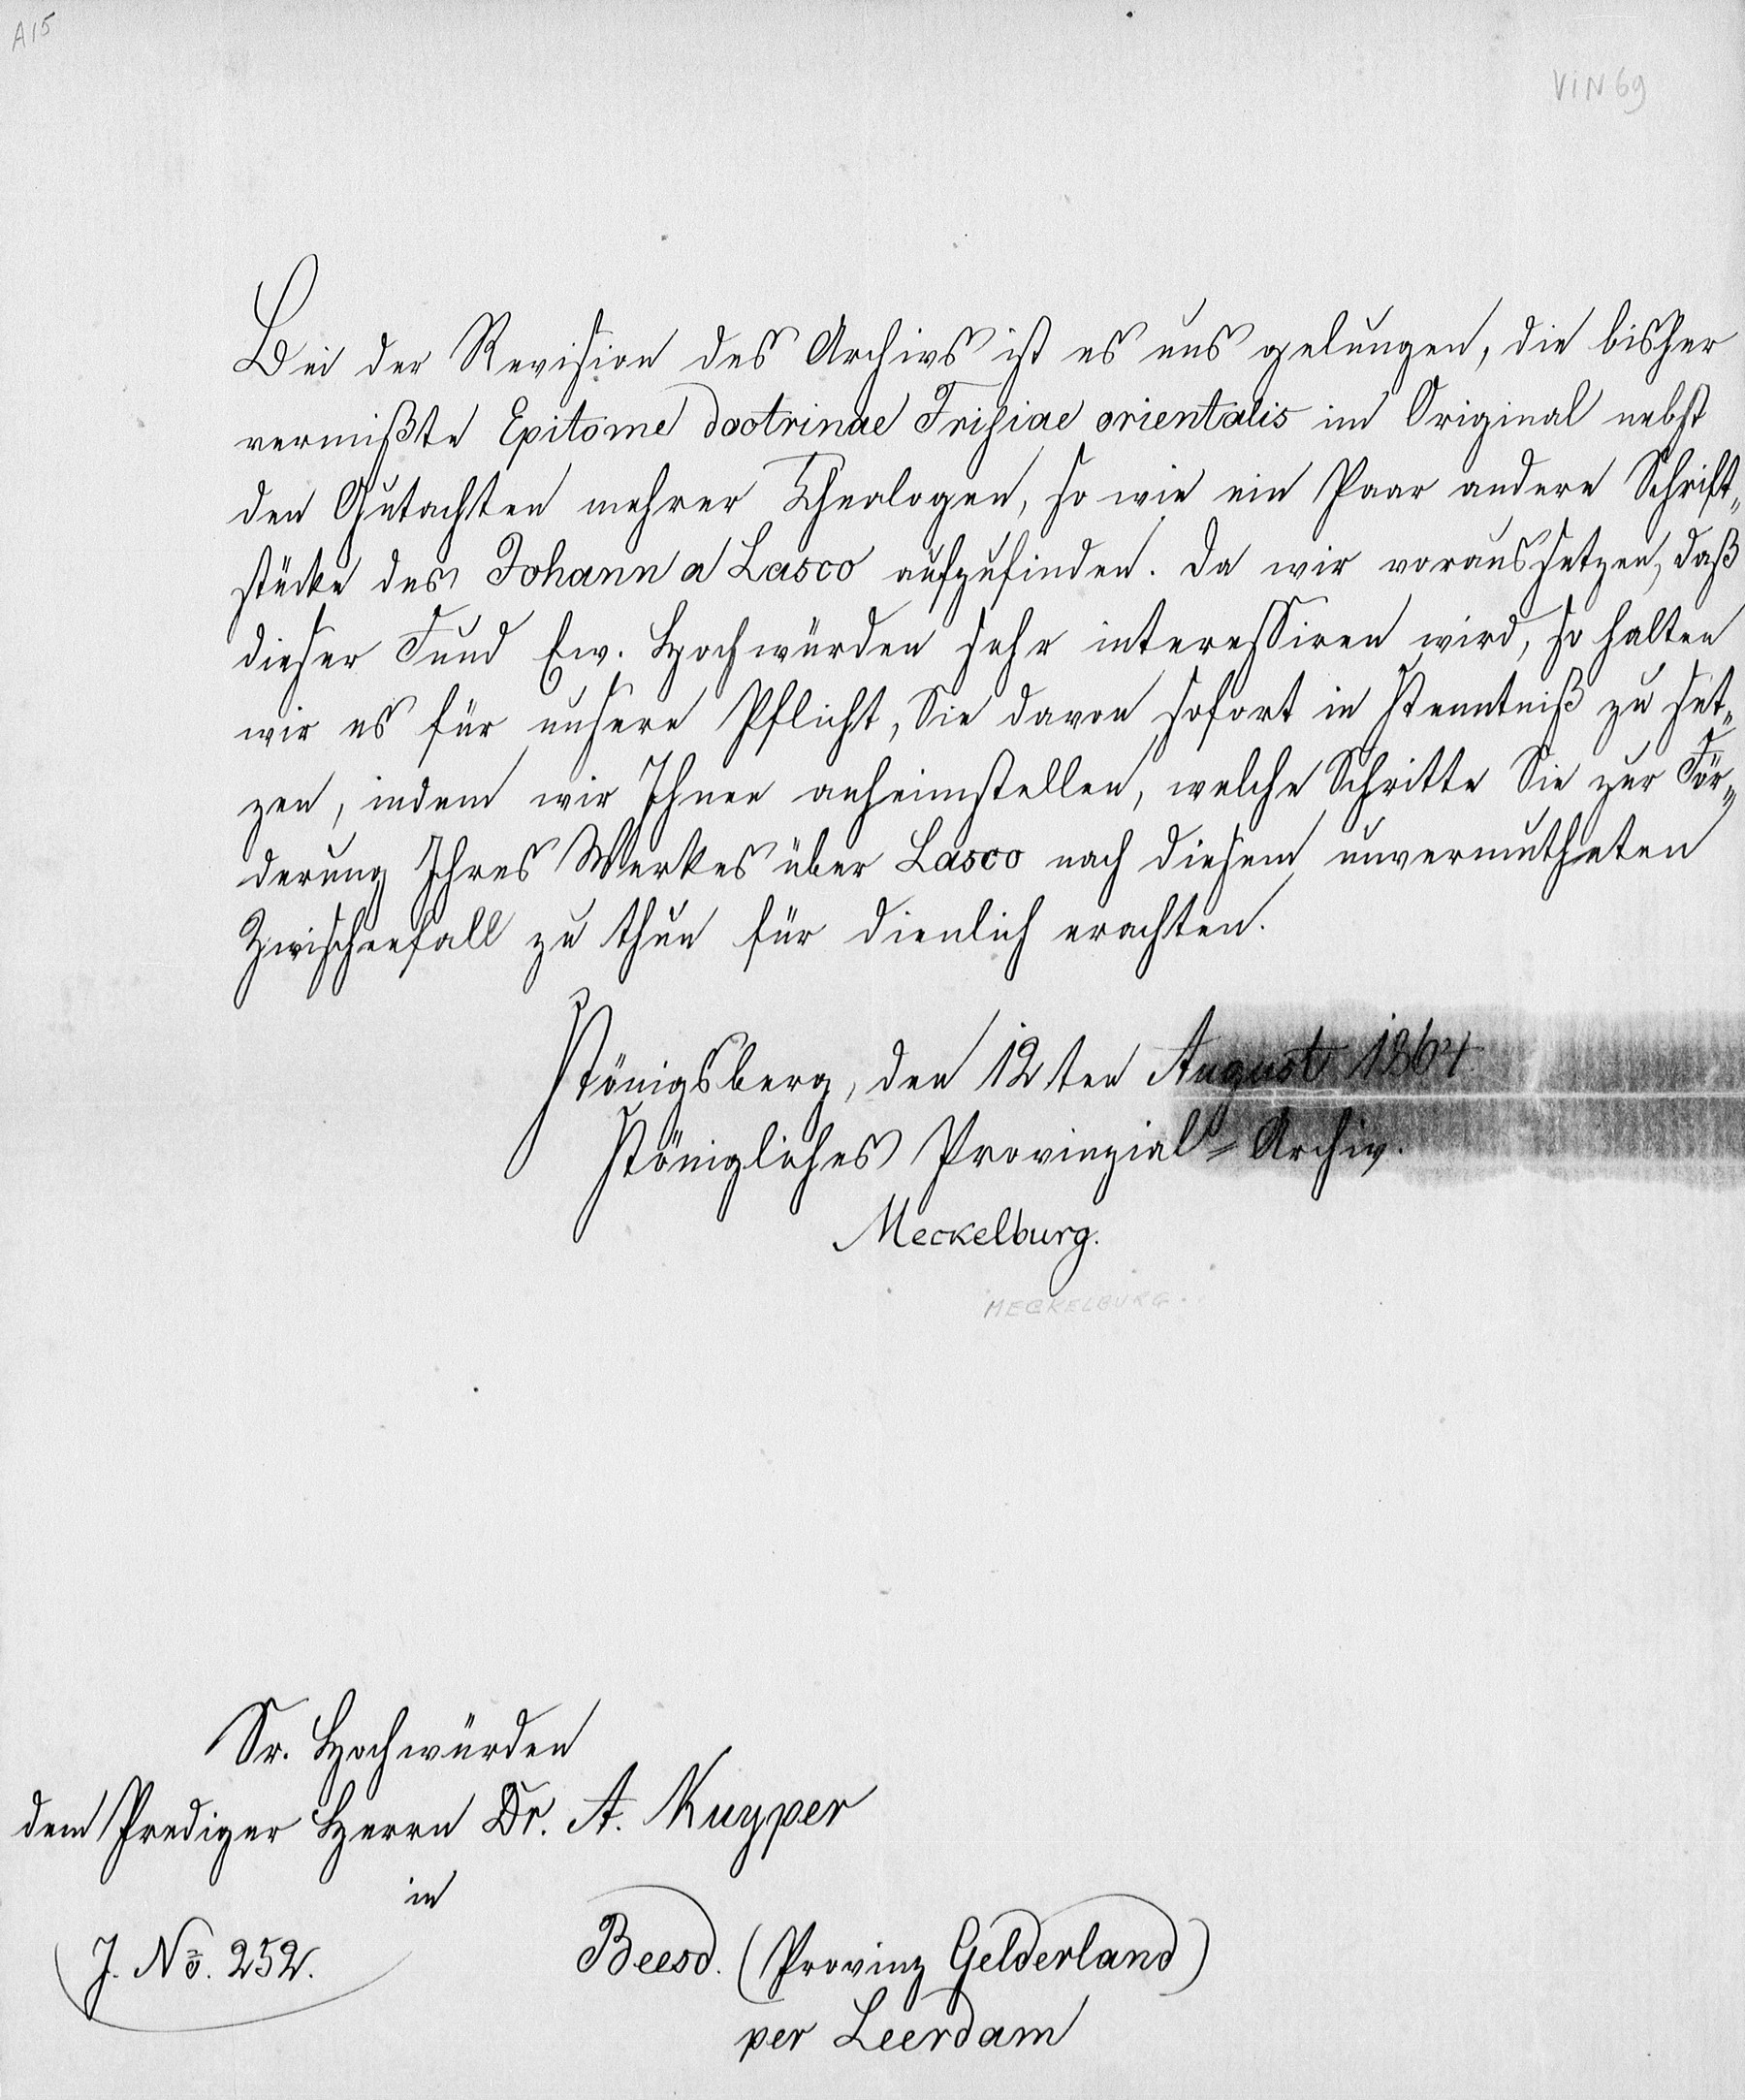 A15
VIN 69
Bei der Revision des Archivs ist es uns gelungen, die bisher
vermißte Epitome doctrinae Frisiae orientalis im Original nebst
den Gutachten mehrer Theologen, so wie ein Paar andere Schrift-
stücke des Johann a Lasco aufzufinden. Da wir voraussetzen, daß
dieser Fund Ew. Hochwürden sehr interessiren wird, so halten
wir es für unsere Pflicht, Sie davon sofort in Kenntniß zu set-
zen, indem wir Ihnen anheimstellen, welche Schritte Sie zur För-
derung Ihres Werkes über Lasco nach diesem unvermutheten
Zwischenfall zu thun für dienlich erachten.
Königsberg, den 12ten August 1864.
Königliches Provinzial-Archiv.
Meckelburg.
MECKELBURG.
Sr. Hochwürden
dem Prediger Herrn Dr. A. Kuyper
in
J. No. 252.
Beesd. (Provinz Gelderland)
per Leerdam